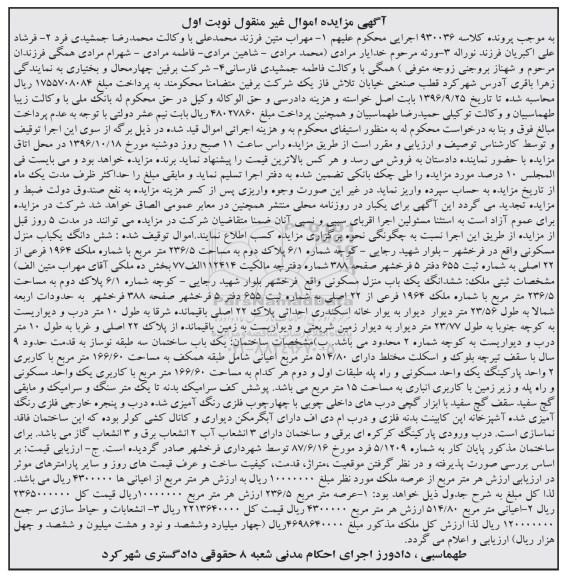 آگهی مزایده اموال غیر منقول نوبت اول
به موجب پرونده کلاسه ۹۳۰۰۳۶ اجرایی محکوم علیهم ۱- مهراب متین فرزند محمدعلی با وکالت محمدرضا جمشیدی فرد ۲- فرشاد
علی اکبریان فرزند نوراله ۳-ورثه مرحوم خدایار مرادی (محمد مرادی - شاهین مرادی- فاطمه مرادی - شهرام مرادی همگی فرزندان
مرحوم و شهناز بروجنی زوجه متوفی ) همگی با وکالت فاطمه جمشیدی فارسانی۴- شرکت برفین چهارمحال و بختیاری به نمایندگی
زهرا باقری آدرس شهرکرد قطب صنعتی خیابان تلاش فاز یک شرکت برفین متضامنا محکومند به پرداخت مبلغ ۱۷۵۵۷۰۸۰۸۴ ریال
محاسبه شده تا تاریخ ۱۳۹۶/۹/۲۵ بابت اصل خواسته و هزینه دادرسی و حق الوکاله وکیل در حق محکوم له بانک ملی با وکالت زیبا
طهماسبیان و وکالت توکیلی حمیدرضا طهماسبیان و همچنین پرداخت مبلغ ۴۸۰۲۷۸۶۰ ریال بابت نیم عشر دولتی با توجه به عدم پرداخت
مبالغ فوق و بنا به درخواست محکوم له به منظور استیفای محکوم به و هزینه اجرائی اموال قید شده در ذیل برگه از سوی این اجرا توقیف
و توسط کارشناس توصیف و ارزیابی و مقرر است از طریق مزایده راس ساعت ۱۱ صبح روز دوشنبه مورخ ۱۳۹۶/۱۰/۱۸ در محل اتاق
مزایده با حضور نماینده دادستان به فروش می رسد و هر کس بالاترین قیمت را پیشنهاد نماید برنده مزایده خواهد بود و می بایست فی
المجلس ۱۰ درصد مورد مزایده را طی چک بانکی تضمین شده به دفتر اجرا تسلیم نماید و مابقی مبلغ را حداکثر ظرف مدت یک ماه
از تاریخ مزایده به حساب سپرده واریز نماید در غیر این صورت وجوه واریزی پس از کسر هزینه مزایده به نفع صندوق دولت ضبط و
مزایده تجدید می گردد این آگهی برای یکبار در روزنامه محلی منتشر همچنین در معابر عمومی الصاق خواهد شد شرکت در مزایده
برای عموم آزاد است به استثنا مسئولین اجرا اقربای سببی و نسبی آنان ضمنا متقاضیان شرکت در مزایده می توانند در مدت ۵ روز قبل
از مزایده از طریق این اجرا نسبت به چگونگی نحوه برگزاری مزایده کسب اطلاع نمایند.اموال توقیف شده : شش دانگ یکباب منزل
مسکونی واقع در فرخشهر - بلوار شهید رجایی - کوچه شماره ۶/۱ پلاک دوم به مساحت ۲۳۶/۵ متر مربع با شماره ملک ۱۹۶۴ فرعی از
۲۲ اصلی به شماره ثبت ۶۵۵ دفتر ۵ فرخشهر صفحه ۳۸۸ شماره دفترچه مالکیت ۱۱۲۴۱۴الف۷۷ بخش ده ملکی آقای مهراب متین الف)
مشخصات ثبتی ملک: ششدانگ یک باب منزل مسکونی واقع در فرخشهر بلوار شهید رجایی - کوچه شماره ۶/۱ پلاک دوم به مساحت
۲۳۶/۵ متر مربع با شماره ملک ۱۹۶۴ فرعی از ۲۲ اصلی به شماره ثبت ۶۵۵ دفتر ۵ فرخشهر صفحه ۳۸۸ فرخشهر به حدودات اربعه
شمالا به طول ۲۳/۵۶ متر دیوار دیوار به دیوار خانه اسکندری احداثی پلاک ۲۲ اصلی باقیمانده شرقا به طول ۱۰ متر درب و دیواریست
به کوچه جنوبا به طول ۲۳/۷۷ متر دیوار به دیوار زمین شریعتی و دیواریست به زمین باقیمانده از پلاک ۲۲ اصلی و غربا به طول ۱۰ متر
درب و دیواریست به کوچه شماره ۲ محدود می باشد.ب)مشخصات ساختمان: یک باب ساختمان سه طبقه نوساز به قدمت حدود ۹
سال با سقف تیرچه بلوک و اسکلت مختلط دارای ۵۱۴/۸۰ متر مربع اعیانی شامل طبقه همکف به مساحت ۱۶۶/۶۰ متر مربع با کاربری
۲ واحد پارکینگ یک واحد مسکونی و راه پله طبقات اول و دوم هر کدام به مساحت ۱۶۶/۶۰ متر مربع با کاربری یک واحد مسکونی
و راه پله و زیر زمین با کاربری انباری به مساحت ۱۵ متر مربع می باشد. پوشش کف سرامیک بدنه تا یک متر سنگ و سرامیک و مابقی
گچ سفید سقف گچ سفید با ابزار گچی درب های داخلی چوبی با چهارچوب فلزی رنگ آمیزی شده درب و پنجره خارجی فلزی رنگ
آمیزی شده آشپزخانه اپن کابینت بدنه فلزی و درب ام دی اف دارای آبگرمکن دیواری و کانال کشی کولر بوده که این ساختمان فاقد
نماسازی است. درب ورودی پارکینگ کرکره ای برقی و ساختمان دارای ۳ انشعاب آب ۲ انشعاب برق و ۳ انشعاب گاز می باشد. برای
ساختمان مذکور پایان کار به شماره ۵/۱۲۰۹ فرد مورخ ۸۷/۶/۱۶ توسط شهرداری فرخشهر صادر گردیده است. ج- ارزیابی قیمت: بر
اساس بررسی صورت پذیرفته و در نظر گرفتن موقعیت ،متراژ، قدمت، کیفیت ساخت و عرف قیمت های روز و سایر پارامترهای موثر
در ارزیابی ارزش هر متر مربع از عرصه ملک مورد نظر مبلغ ۱۰۰۰۰۰۰۰ ریال به ارزش هر متر مربع از اعیانی ها ۴۳۰۰۰۰۰ ریال می باشد.
لذا کل مبلغ به شرح جدول ذیل خواهد بود: ۱-عرصه متر مربع ۲۳۶/۵ ارزش هر متر مربع ۱۰۰۰۰۰۰۰ریال قیمت کل ۲۳۶۵۰۰۰۰۰۰
ریال ۲-اعیانی متر مربع ۵۱۴/۸۰ ارزش هر متر مربع ۴۳۰۰۰۰۰ ریال قیمت کل ۲۲۱۳۶۴۰۰۰۰ ریال ۳- انشعابات و حیاط سازی سر جمع
۱۲۰۰۰۰۰۰۰ ریال لذا ارزش کل ملک مذکور مبلغ ۴۶۹۸۶۴۰۰۰۰ریال (چهار میلیارد وششصد و نود و هشت میلیون و ششصد و چهل
هزار ریال) ارزیابی و اعلام می گردد.
طهماسبی ، دادورز اجرای احکام مدنی شعبه ۸ حقوقی دادگستری شهرکرد